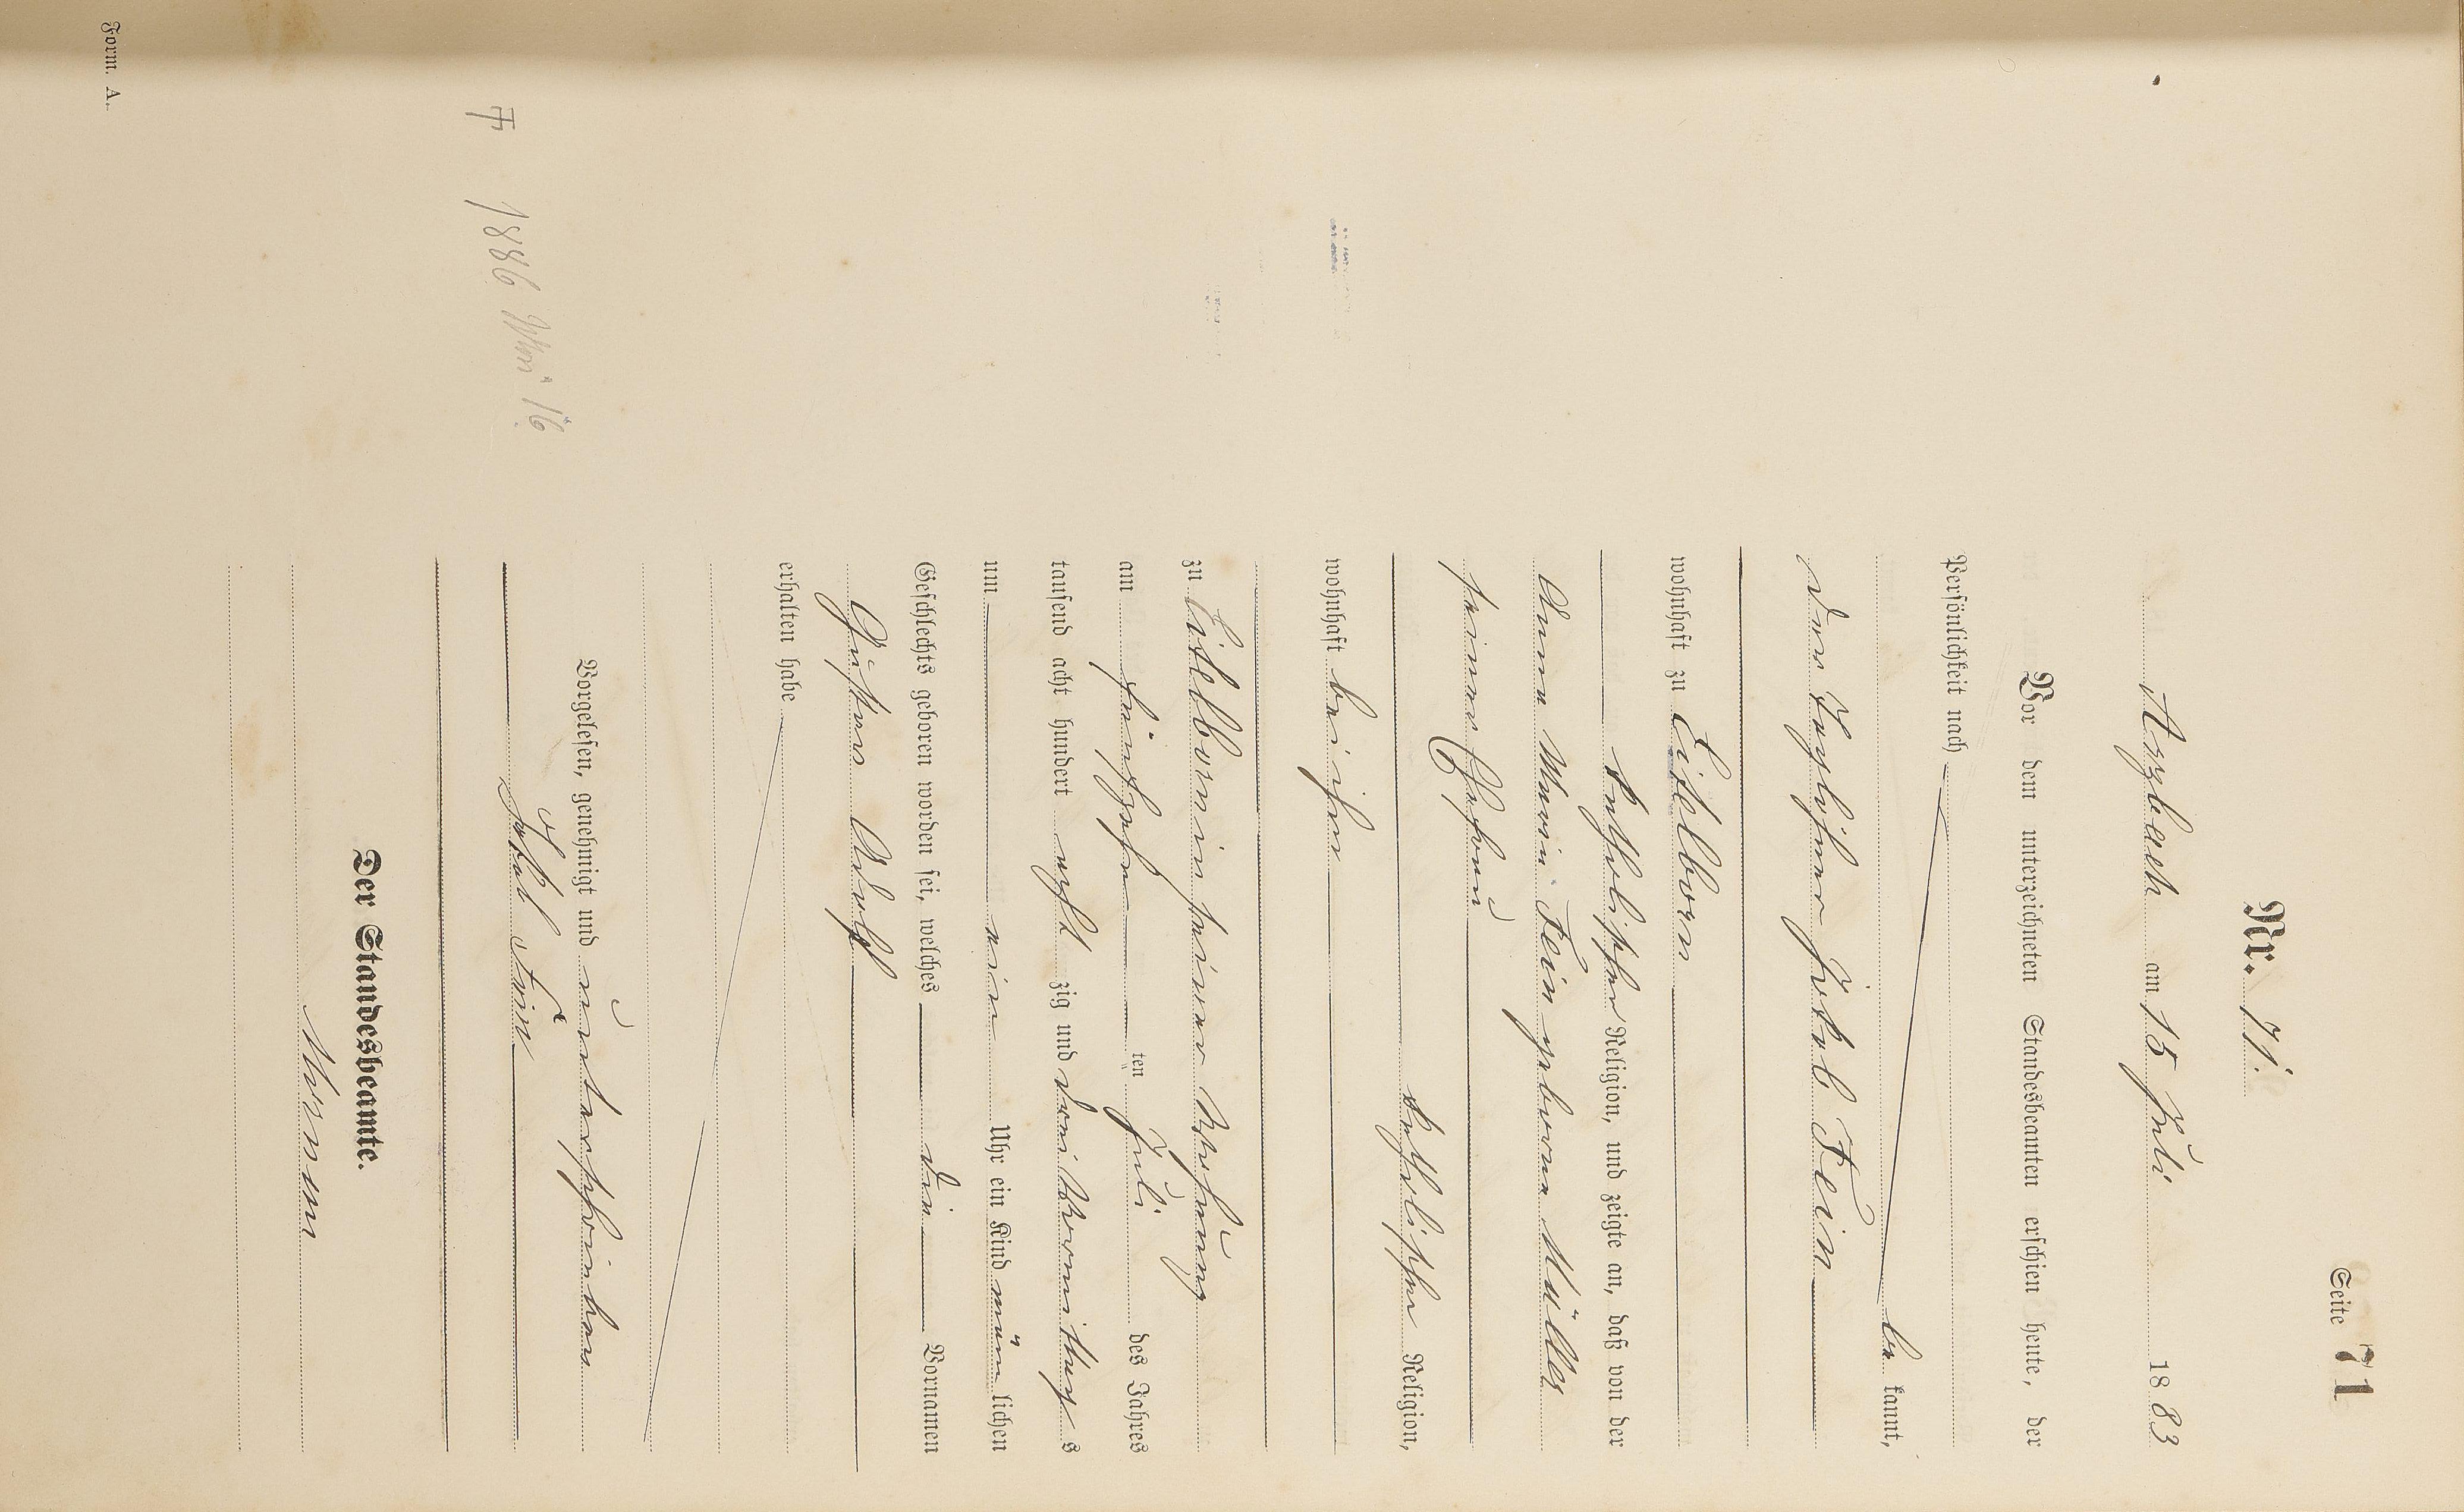 Seite 71
Nr. 71.
Arzbach am 15 Juli 1883
Vor dem unterzeichneten Standesbeamten erschien heute, der
Persönlichkeit nach
be kannt,
der Taglöhner Jakob Fein
wohnhaft zu Eitelborn
katholischer Religion, und zeigte an, daß von der
Anna Maria Fein geborne Müller
seiner Ehefrau
katholischer Religion,
wohnhaft bei ihm
zu Eitelborn in seiner Wohnung
am fünfzehn ten Juli des Jahres
tausend acht hundert acht zig und drei Vormittags
um ein Uhr ein Kind männlichen
Geschlechts geboren worden sei, welches die Vornamen
Gustav Adolf
erhalten habe
Vorgelesen, genehmigt und unterschrieben
Jakob Fein
Der Standesbeamte.
† 1886 Mai 16
Form. A.